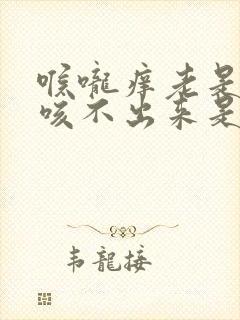 喉嚨痒老是
咳不出来是
韦龍接